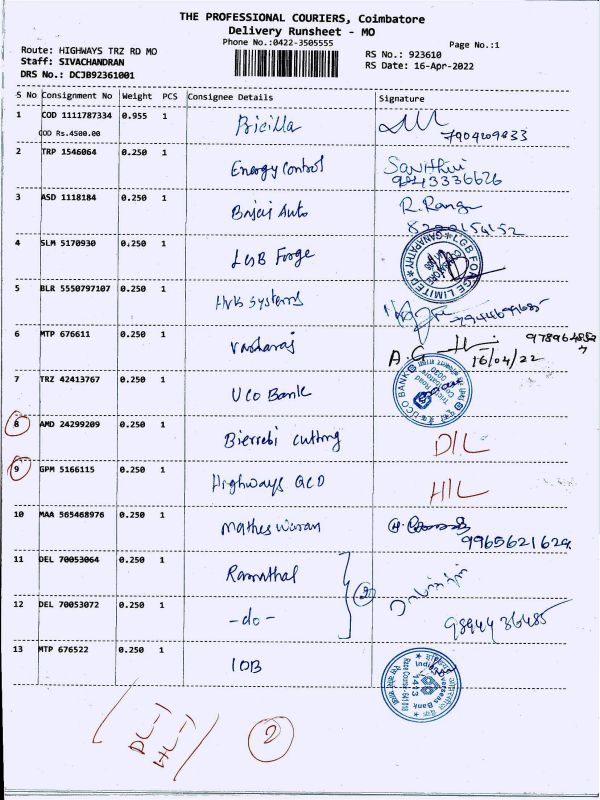 THE PROFESSIONAL COURIERS, Coimbatore
Delivery Runsheet - MO
Phone No.:0422-3505555
Page No.:1
Route: HIGHWAYS TRZ RD MO
Staff: SIVACHANDRAN
DRS No.: DCJB92361001
RS No.: 923610
RS Date: 16-Apr-2022
S No Consignment No Weight PCS Consignee Details Signature
1 COD 1111787334 0.955 1 Pricilla
COD Rs.4500.00 7904209833
2 TRP 1546064 0.250 1 Energy Control
9843336626
3 ASD 1118184 0.250 1 Bajaj Auto R. Rangu
4 SLM 5170930 0.250 1 LGB Forge LGB FORGE LIMITED GANAPATHY
5 BLR 5550797107 0.250 1 systems
6 MTP 676611 0.250 1 A.G 16/04/22
7 TRZ 42413767 0.250 1 UCO Bank UCO BANK
8 AMD 24299209 0.250 1 cutting D/L
9 GPM 5166115 0.250 1 Highways H/L
10 MAA 565468976 0.250 1 Matheswaran
11 DEL 70053064 0.250 1 Ramathal 2
12 DEL 70053072 0.250 1 -do- 9894436485
13 MTP 676522 0.250 1 IOB Indian Overseas Bank 1413
DL-1
HL-1
2